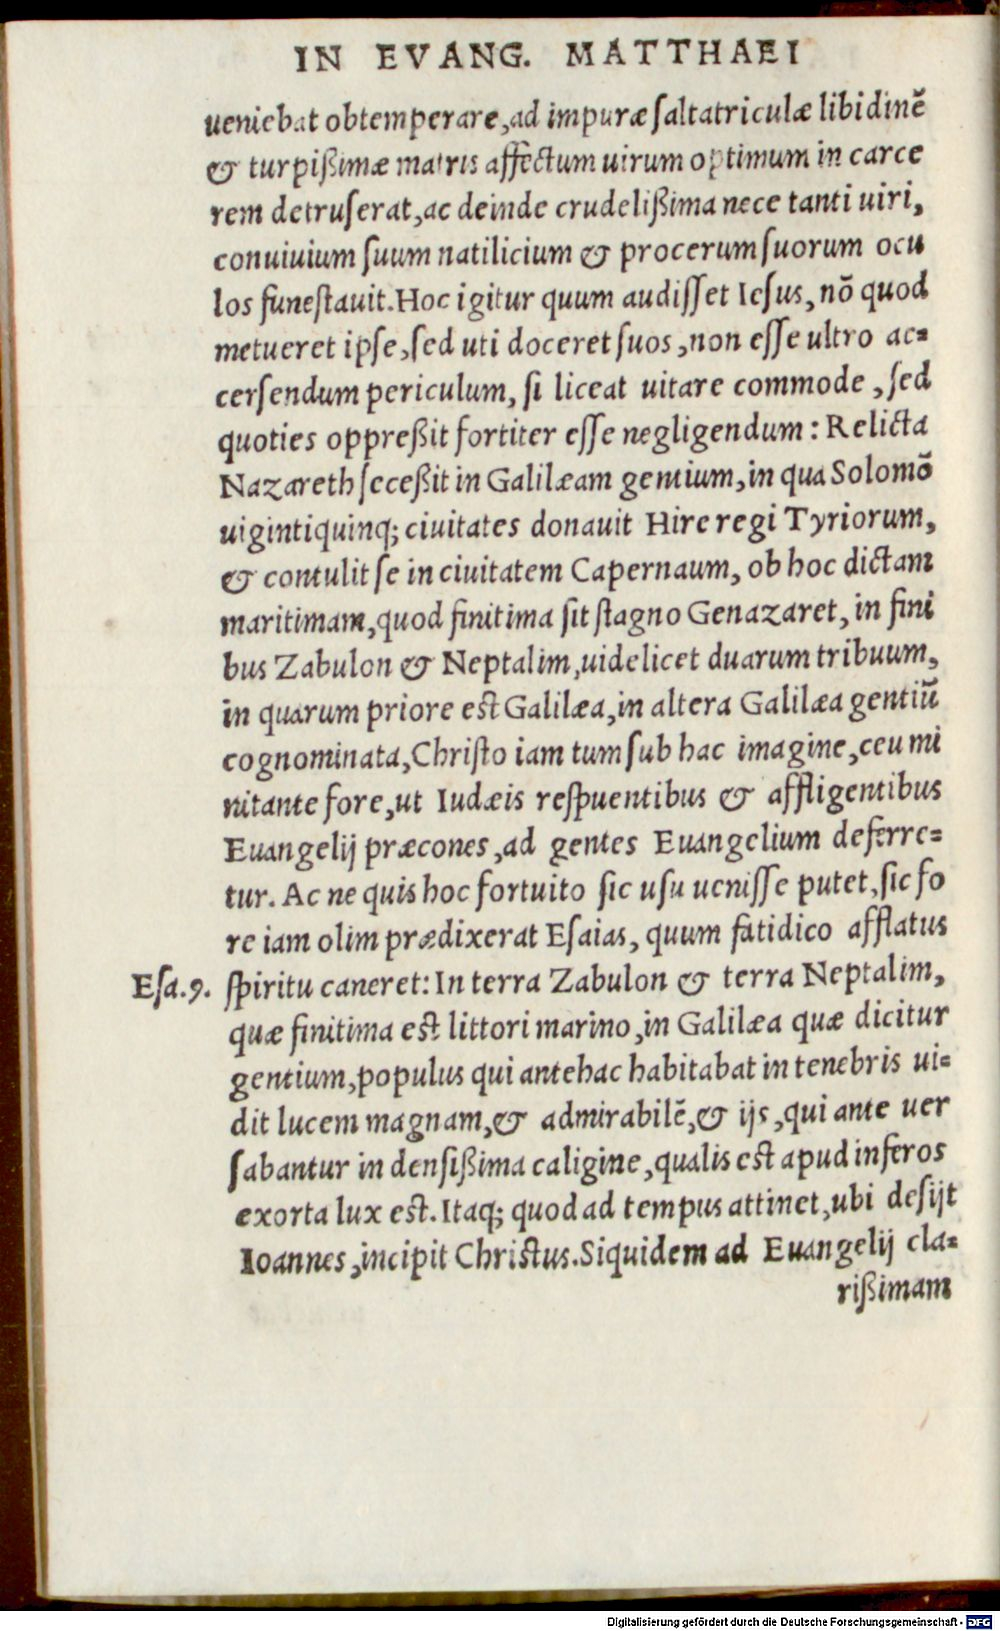 IN EVANG. MATTHAEI
ueniebat obtemperare, ad impuræ ſaltatriculæ libidinē
& turpißimæ matris affectum uirum optimum in carce
rem detruſerat, ac deinde crudelißima nece tanti uiri,
conuiuium ſuum natilicium & procerum ſuorum ocu
los funeſtauit. Hoc igitur quum audiſſet Ieſus, nō quod
metueret ipſe, ſed uti doceret ſuos, non eſſe ultro ac=
cerſendum periculum, ſi liceat uitare commode, ſed
quoties oppreßit fortiter eſſe negligendum: Relicta
Nazareth ſeceßit in Galilæam gentium, in qua Solomō
uigintiquinq; ciuitates donauit Hire regi Tyriorum,
& contulit ſe in ciuitatem Capernaum, ob hoc dictam
maritimam, quod finitima ſit ſtagno Genazaret, in fini
bus Zabulon & Neptalim, uidelicet duarum tribuum,
in quarum priore eſt Galilæa, in altera Galilæa gentiū
cognominata, Chriſto iam tum ſub hac imagine, ceu mi
nitante fore, ut Iudæis reſpuentibus & affligentibus
Euangelij præcones, ad gentes Euangelium deferre=
tur. Ac ne quis hoc fortuito ſic uſu ueniſſe putet, ſic fo
re iam olim prædixerat Eſaias, quum fatidico afflatus
Eſa.9. ſpiritu caneret: In terra Zabulon & terra Neptalim,
quæ finitima eſt littori marino, in Galilæa quæ dicitur
gentium, populus qui antehac habitabat in tenebris ui=
dit lucem magnam, & admirabilē, & ijs, qui ante uer
ſabantur in denſißima caligine, qualis eſt apud inferos
exorta lux eſt. Itaq; quod ad tempus attinet, ubi deſijt
Ioannes, incipit Chriſtus. Siquidem ad Euangelij cla=
rißimam
Digitalisierung gefördert durch die Deutsche Forschungsgemeinschaft - DFG